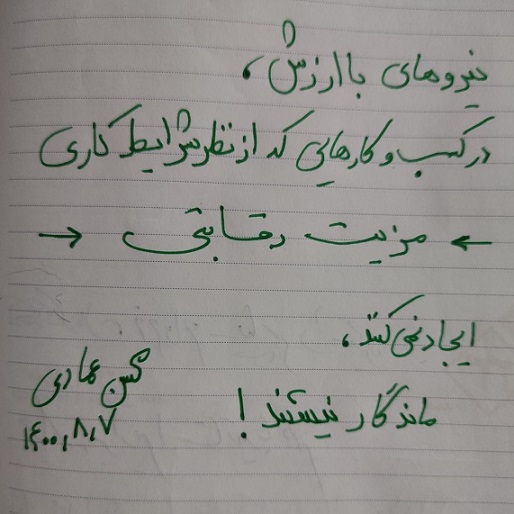 نیروهای با ارزش،
در کسب و کارهایی که از نظر شرایط کاری
← مزیت رقابتی →
ایجاد نمی کنند،
ماندگار نیستند!
محسن عمادی
۱۴۰۰،۸،۷